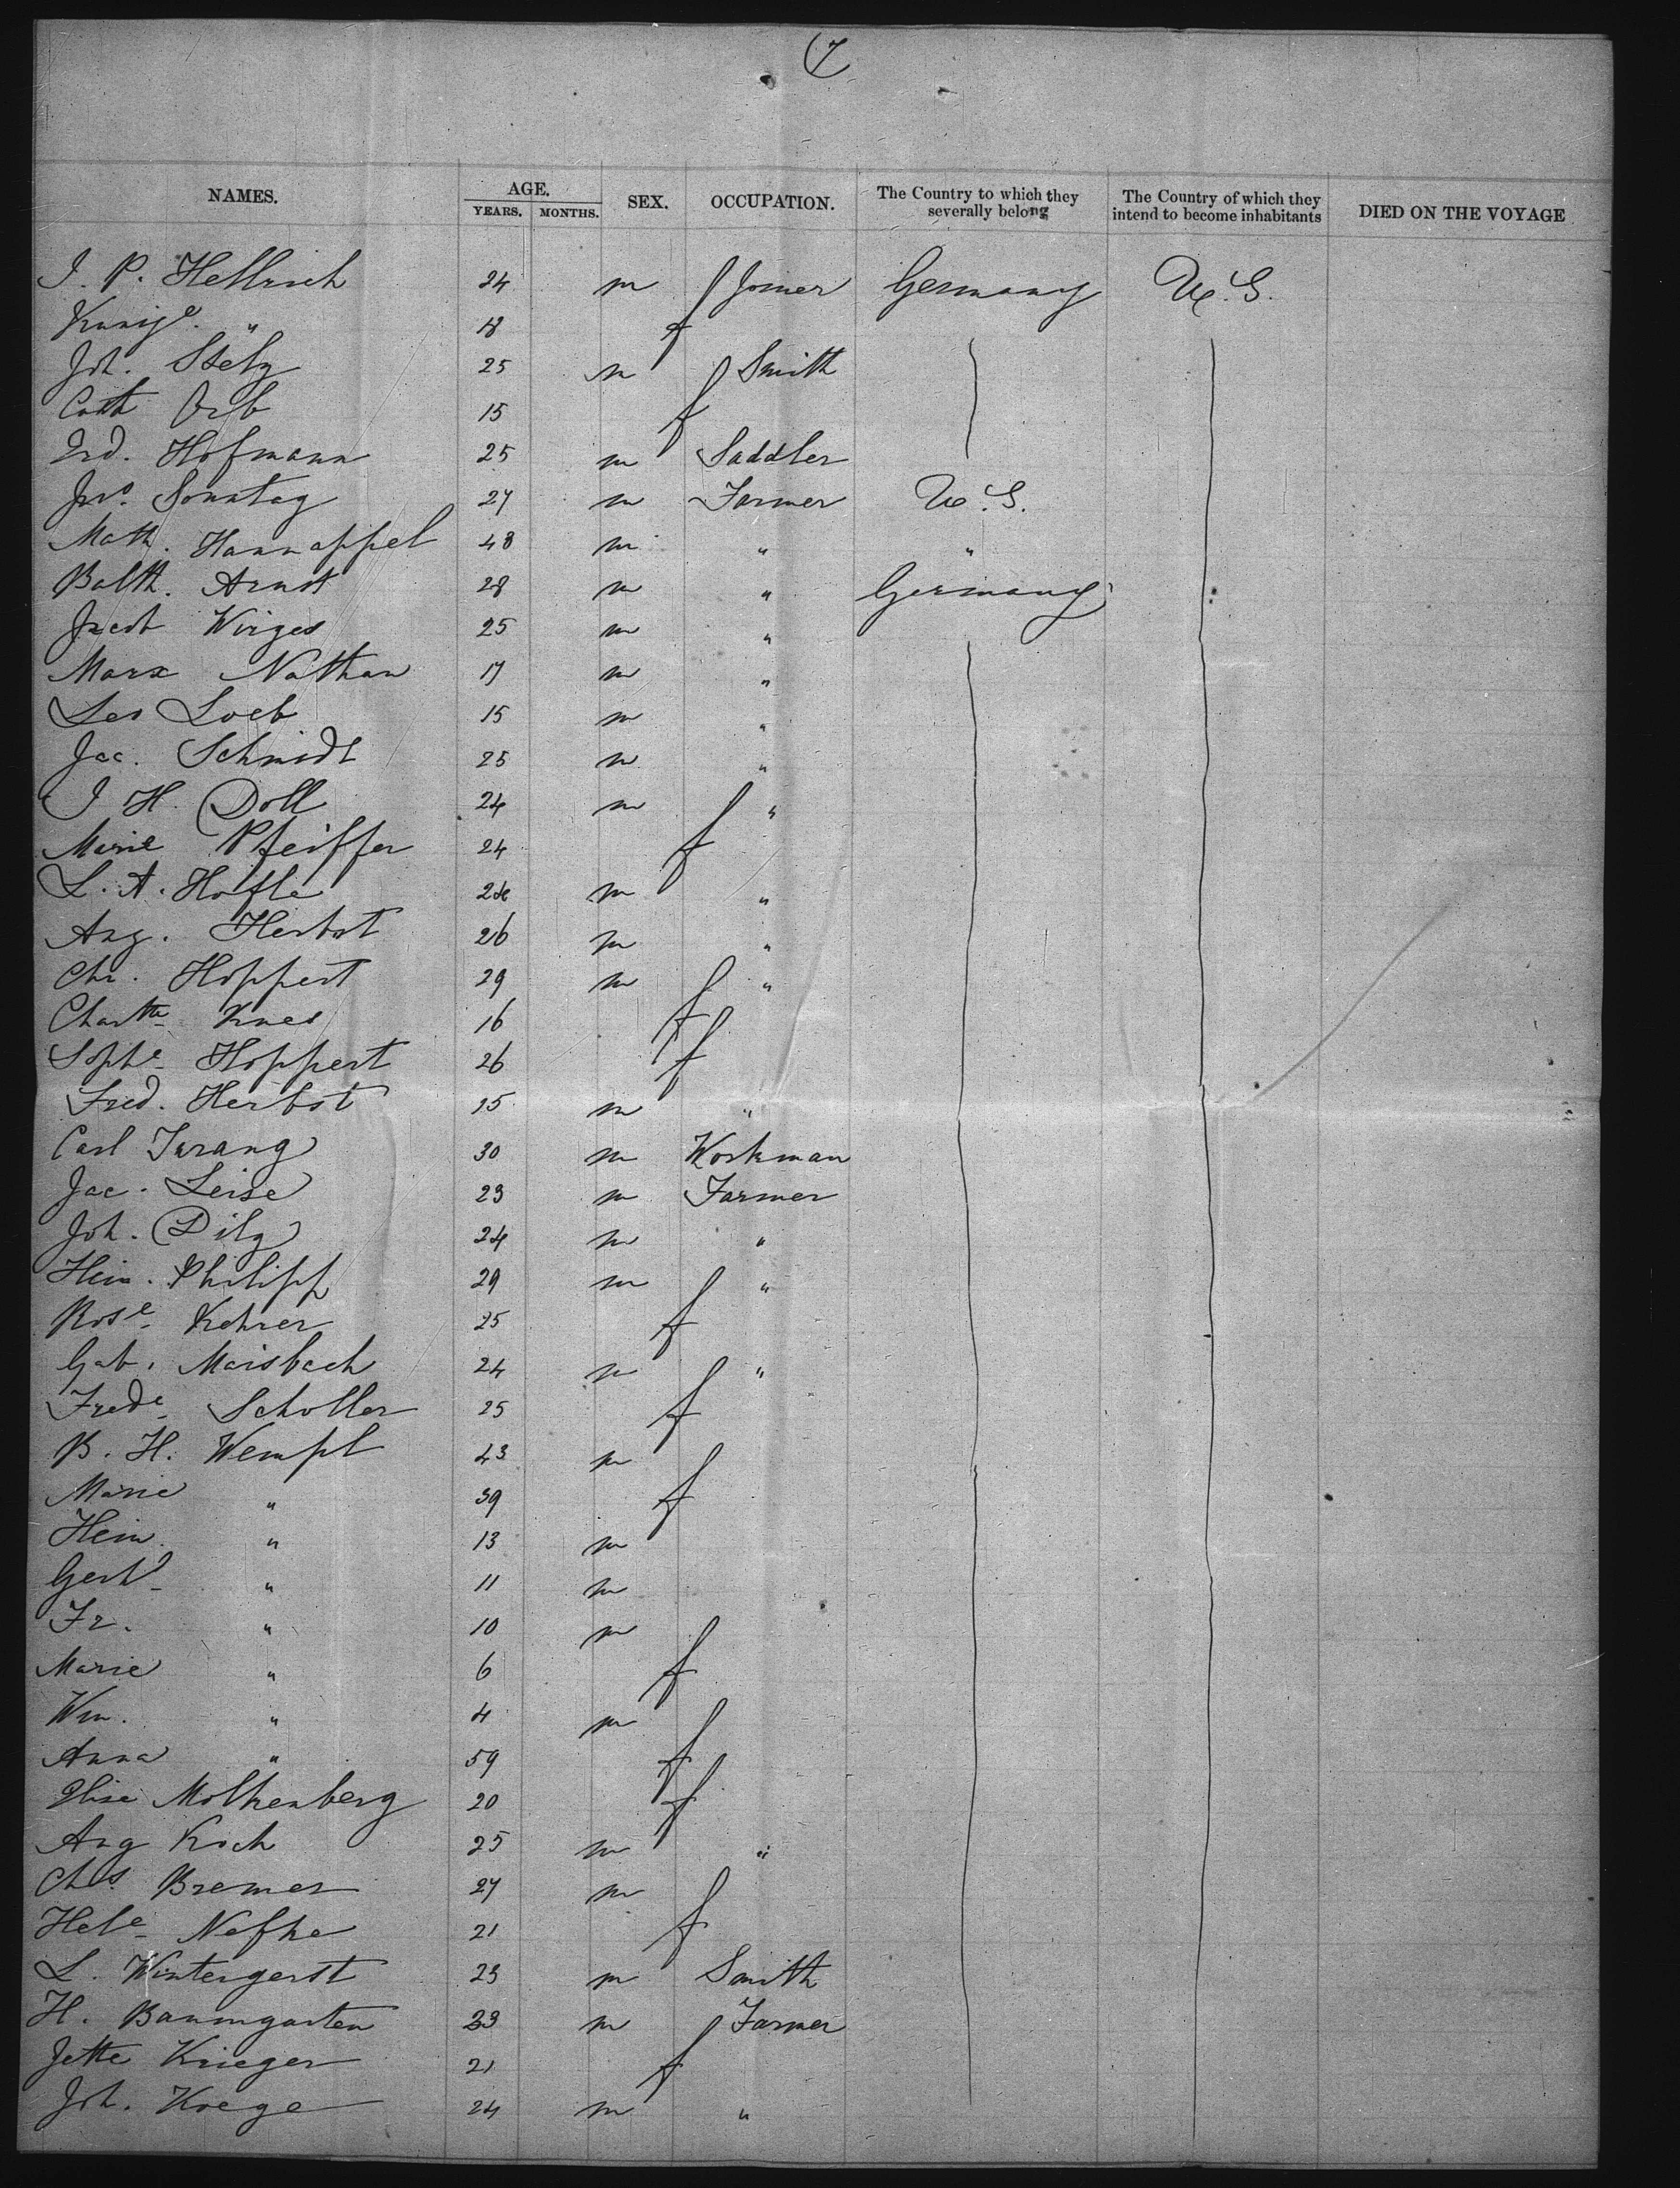 7
NAMES. AGE. YEARS. MONTHS. SEX. OCCUPATION. The Country to which they severally belong The Country of which they intend to become inhabitants DIED ON THE VOYAGE
J. P. Hellrich 24 m Joiner Germany U.S.
Kunige. " 18 f
Joh. Stelz 25 m Smith
Cath Orb 15 f
Frd. Hofmann 25 m Saddler
Jno. Sonntag 27 m Farmer U.S.
Math. Hannappel 48 m " "
Balth. Arndt 28 m " Germany
Jacob Wirges 25 m "
Marx Nathan 17 m "
Leo Loeb 15 m "
Jac. Schmidt 25 m "
J H. Doll 24 m "
Marie Pfeiffer 24 f
L. A. Hofle 24 m "
Aug. Herbst 26 m "
Chr. Hoppert 29 m "
Chartte Knes 16 f
Sophe Hoppert 26 f
Fred. Herbst 15 m "
Carl Turang 30 m Workman
Jac. Leise 23 m Farmer
Joh. Dilg 24 m "
Hein. Philipp 29 m "
Rose Kehrer 25 f
Gab. Maisbach 24 m "
Frede Scholler 25 f
B. H. Wempl 43 m
Marie " 39 f
Hein. " 13 m
Gerhd " 11 m
Fr. " 10 m
Marie " 6 f
Wm. " 4 m
Anna " 59 f
Elise Molkenberg 20 f
Aug Koch 25 m "
Chs. Bremer 27 m
Hele Nefke 21 f
L. Wintergerst 23 m Smith
H. Baumgarten 23 m Farmer
Jette Krieger 21 f
Joh. Koege 24 m "